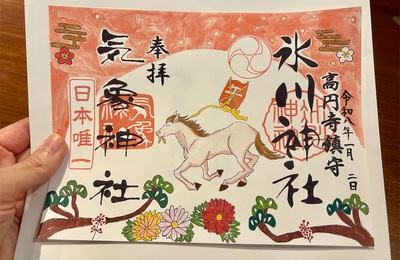 令和八年一月二日
高円寺鎮守
氷川神社
奉拝
気象神社
日本唯一